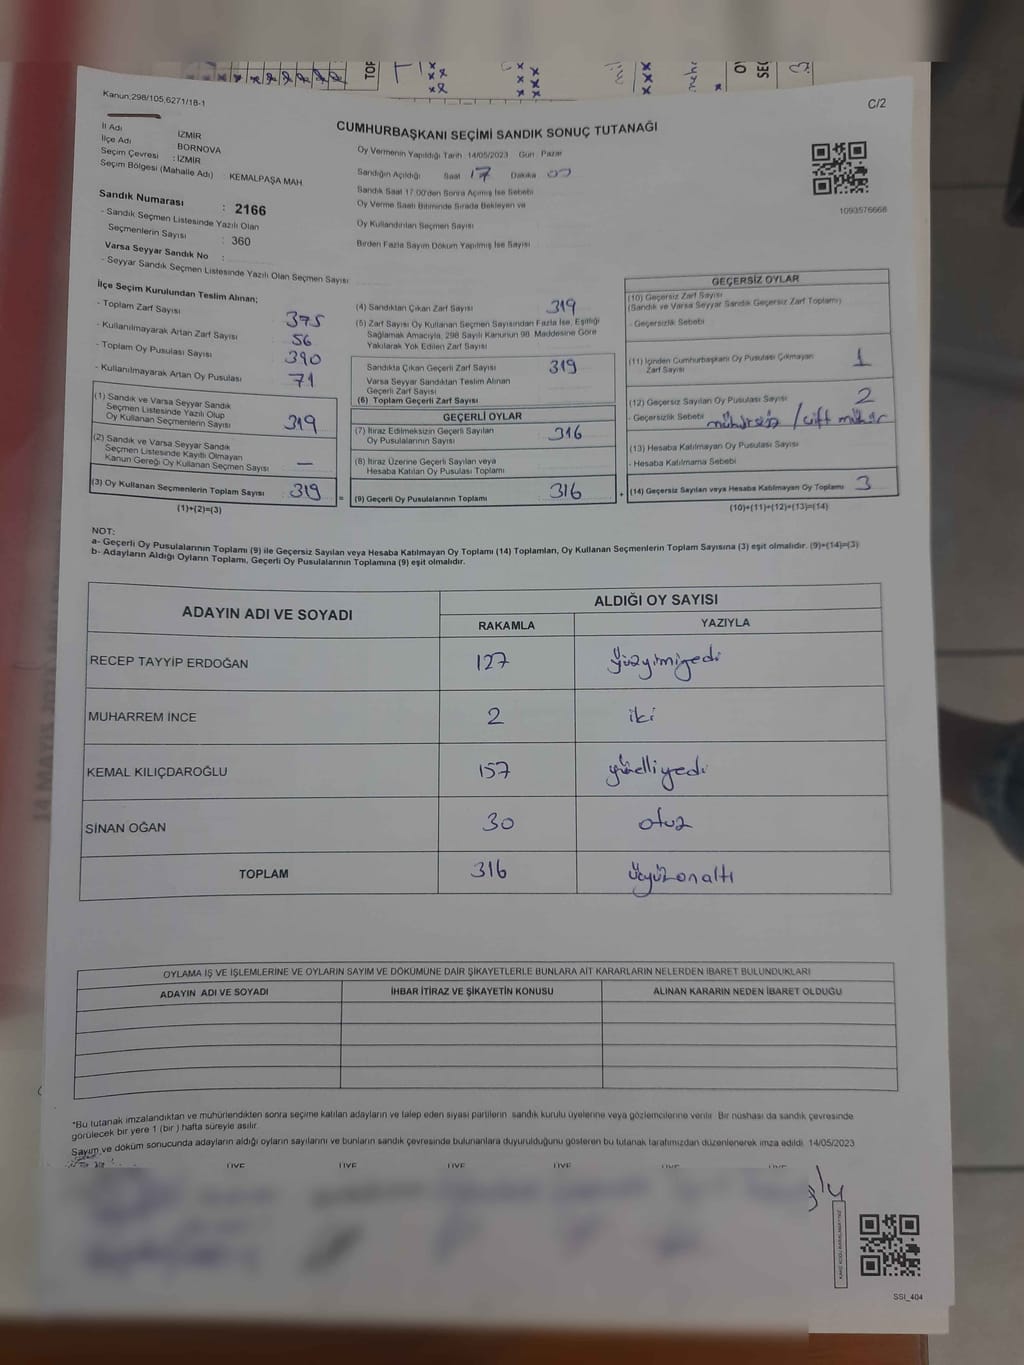 Kanun;298/105,6271/18-1
C/2
CUMHURBAŞKANI SEÇİMİ SANDIK SONUÇ TUTANAĞI
İl Adı İZMİR
İlçe Adı BORNOVA
Seçim Çevresi : İZMİR
Seçim Bölgesi (Mahalle Adı) KEMALPAŞA MAH
Sandık Numarası : 2166
- Sandık Seçmen Listesinde Yazılı Olan
Seçmenlerin Sayısı : 360
Varsa Seyyar Sandık No :
- Seyyar Sandık Seçmen Listesinde Yazılı Olan Seçmen Sayısı
Oy Vermenin Yapıldığı Tarih 14/05/2023 Gün Pazar
Sandığın Açıldığı Saat 17 Dakika 00
Sandık Saat 17.00'den Sonra Açılmış İse Sebebi
Oy Verme Saati Bitiminde Sırada Bekleyen ve
Oy Kullandırılan Seçmen Sayısı
Birden Fazla Sayım Döküm Yapılmış İse Sayısı
1093576668
İlçe Seçim Kurulundan Teslim Alınan;
- Toplam Zarf Sayısı 375
- Kullanılmayarak Artan Zarf Sayısı 56
- Toplam Oy Pusulası Sayısı 390
- Kullanılmayarak Artan Oy Pusulası 71
(1) Sandık ve Varsa Seyyar Sandık
Seçmen Listesinde Yazılı Olup
Oy Kullanan Seçmenlerin Sayısı 319
(2) Sandık ve Varsa Seyyar Sandık
Seçmen Listesinde Kayıtlı Olmayan
Kanun Gereği Oy Kullanan Seçmen Sayısı —
(3) Oy Kullanan Seçmenlerin Toplam Sayısı 319 =
(1)+(2)=(3)
(4) Sandıktan Çıkan Zarf Sayısı 319
(5) Zarf Sayısı Oy Kullanan Seçmen Sayısından Fazla İse, Eşitliği
Sağlamak Amacıyla, 298 Sayılı Kanunun 98. Maddesine Göre
Yakılarak Yok Edilen Zarf Sayısı
Sandıkta Çıkan Geçerli Zarf Sayısı 319
Varsa Seyyar Sandıktan Teslim Alınan
Geçerli Zarf Sayısı
(6) Toplam Geçerli Zarf Sayısı
GEÇERLİ OYLAR
(7) İtiraz Edilmeksizin Geçerli Sayılan
Oy Pusulalarının Sayısı 316
(8) İtiraz Üzerine Geçerli Sayılan veya
Hesaba Katılan Oy Pusulası Toplamı
(9) Geçerli Oy Pusulalarının Toplamı 316 +
GEÇERSİZ OYLAR
(10) Geçersiz Zarf Sayısı
(Sandık ve Varsa Seyyar Sandık Geçersiz Zarf Toplamı)
- Geçersizlik Sebebi
(11) İçinden Cumhurbaşkanı Oy Pusulası Çıkmayan
Zarf Sayısı 1
(12) Geçersiz Sayılan Oy Pusulası Sayısı 2
- Geçersizlik Sebebi mühürsüz / çift mühür
(13) Hesaba Katılmayan Oy Pusulası Sayısı
- Hesaba Katılmama Sebebi
(14) Geçersiz Sayılan veya Hesaba Katılmayan Oy Toplamı 3
(10)+(11)+(12)+(13)=(14)
NOT:
a- Geçerli Oy Pusulalarının Toplamı (9) ile Geçersiz Sayılan veya Hesaba Katılmayan Oy Toplamı (14) Toplamları, Oy Kullanan Seçmenlerin Toplam Sayısına (3) eşit olmalıdır. (9)+(14)=(3)
b- Adayların Aldığı Oyların Toplamı, Geçerli Oy Pusulalarının Toplamına (9) eşit olmalıdır.
ADAYIN ADI VE SOYADI ALDIĞI OY SAYISI
RAKAMLA YAZIYLA
RECEP TAYYİP ERDOĞAN 127 yüzyirmiyedi
MUHARREM İNCE 2 iki
KEMAL KILIÇDAROĞLU 157 yüzelliyedi
SİNAN OĞAN 30 otuz
TOPLAM 316 üçyüzonaltı
OYLAMA İŞ VE İŞLEMLERİNE VE OYLARIN SAYIM VE DÖKÜMÜNE DAİR ŞİKAYETLERLE BUNLARA AİT KARARLARIN NELERDEN İBARET BULUNDUKLARI
ADAYIN ADI VE SOYADI İHBAR İTİRAZ VE ŞİKAYETİN KONUSU ALINAN KARARIN NEDEN İBARET OLDUĞU
*Bu tutanak imzalandıktan ve mühürlendikten sonra seçime katılan adayların ve talep eden siyasi partilerin sandık kurulu üyelerine veya gözlemcilerine verilir. Bir nüshası da sandık çevresinde
görülecek bir yere 1 (bir) hafta süreyle asılır.
Sayım ve döküm sonucunda adayların aldığı oyların sayılarını ve bunların sandık çevresinde bulunanlara duyurulduğunu gösteren bu tutanak tarafımızdan düzenlenerek imza edildi. 14/05/2023
SSI_404